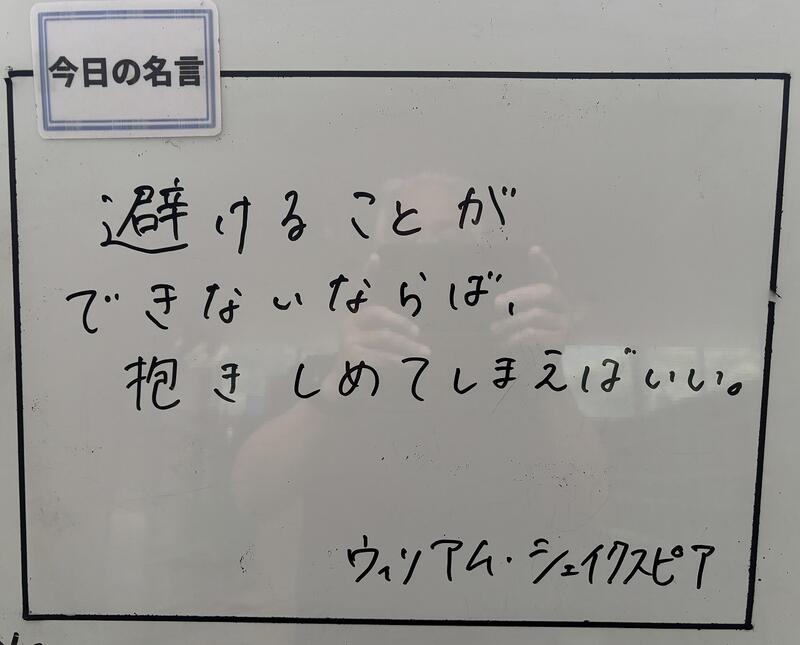 今日の名言
避けることが
できないならば、
抱きしめてしまえばいい。
ウィリアム・シェイクスピア